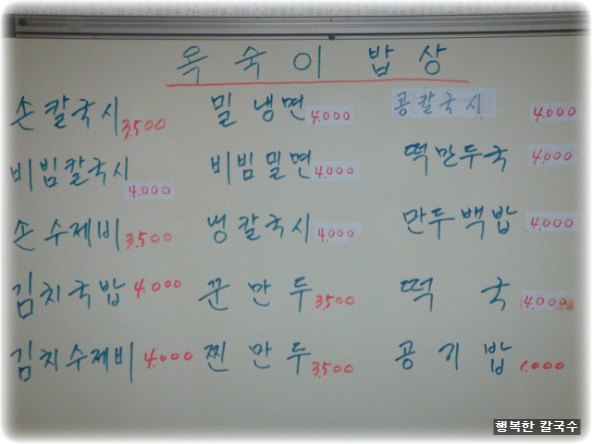 옥숙이 밥상
손칼국시 3,500 밀냉면 4,000 콩칼국시 4,000
비빔칼국시 4,000 비빔밀면 4,000 떡만두국 4,000
손수제비 3,500 냉칼국시 4,000 만두백밥 4,000
김치국밥 4,000 꾼만두 3,500 떡국 4,000
김치수제비 4,000 찐만두 3,500 공기밥 1,000
행복한 칼국수